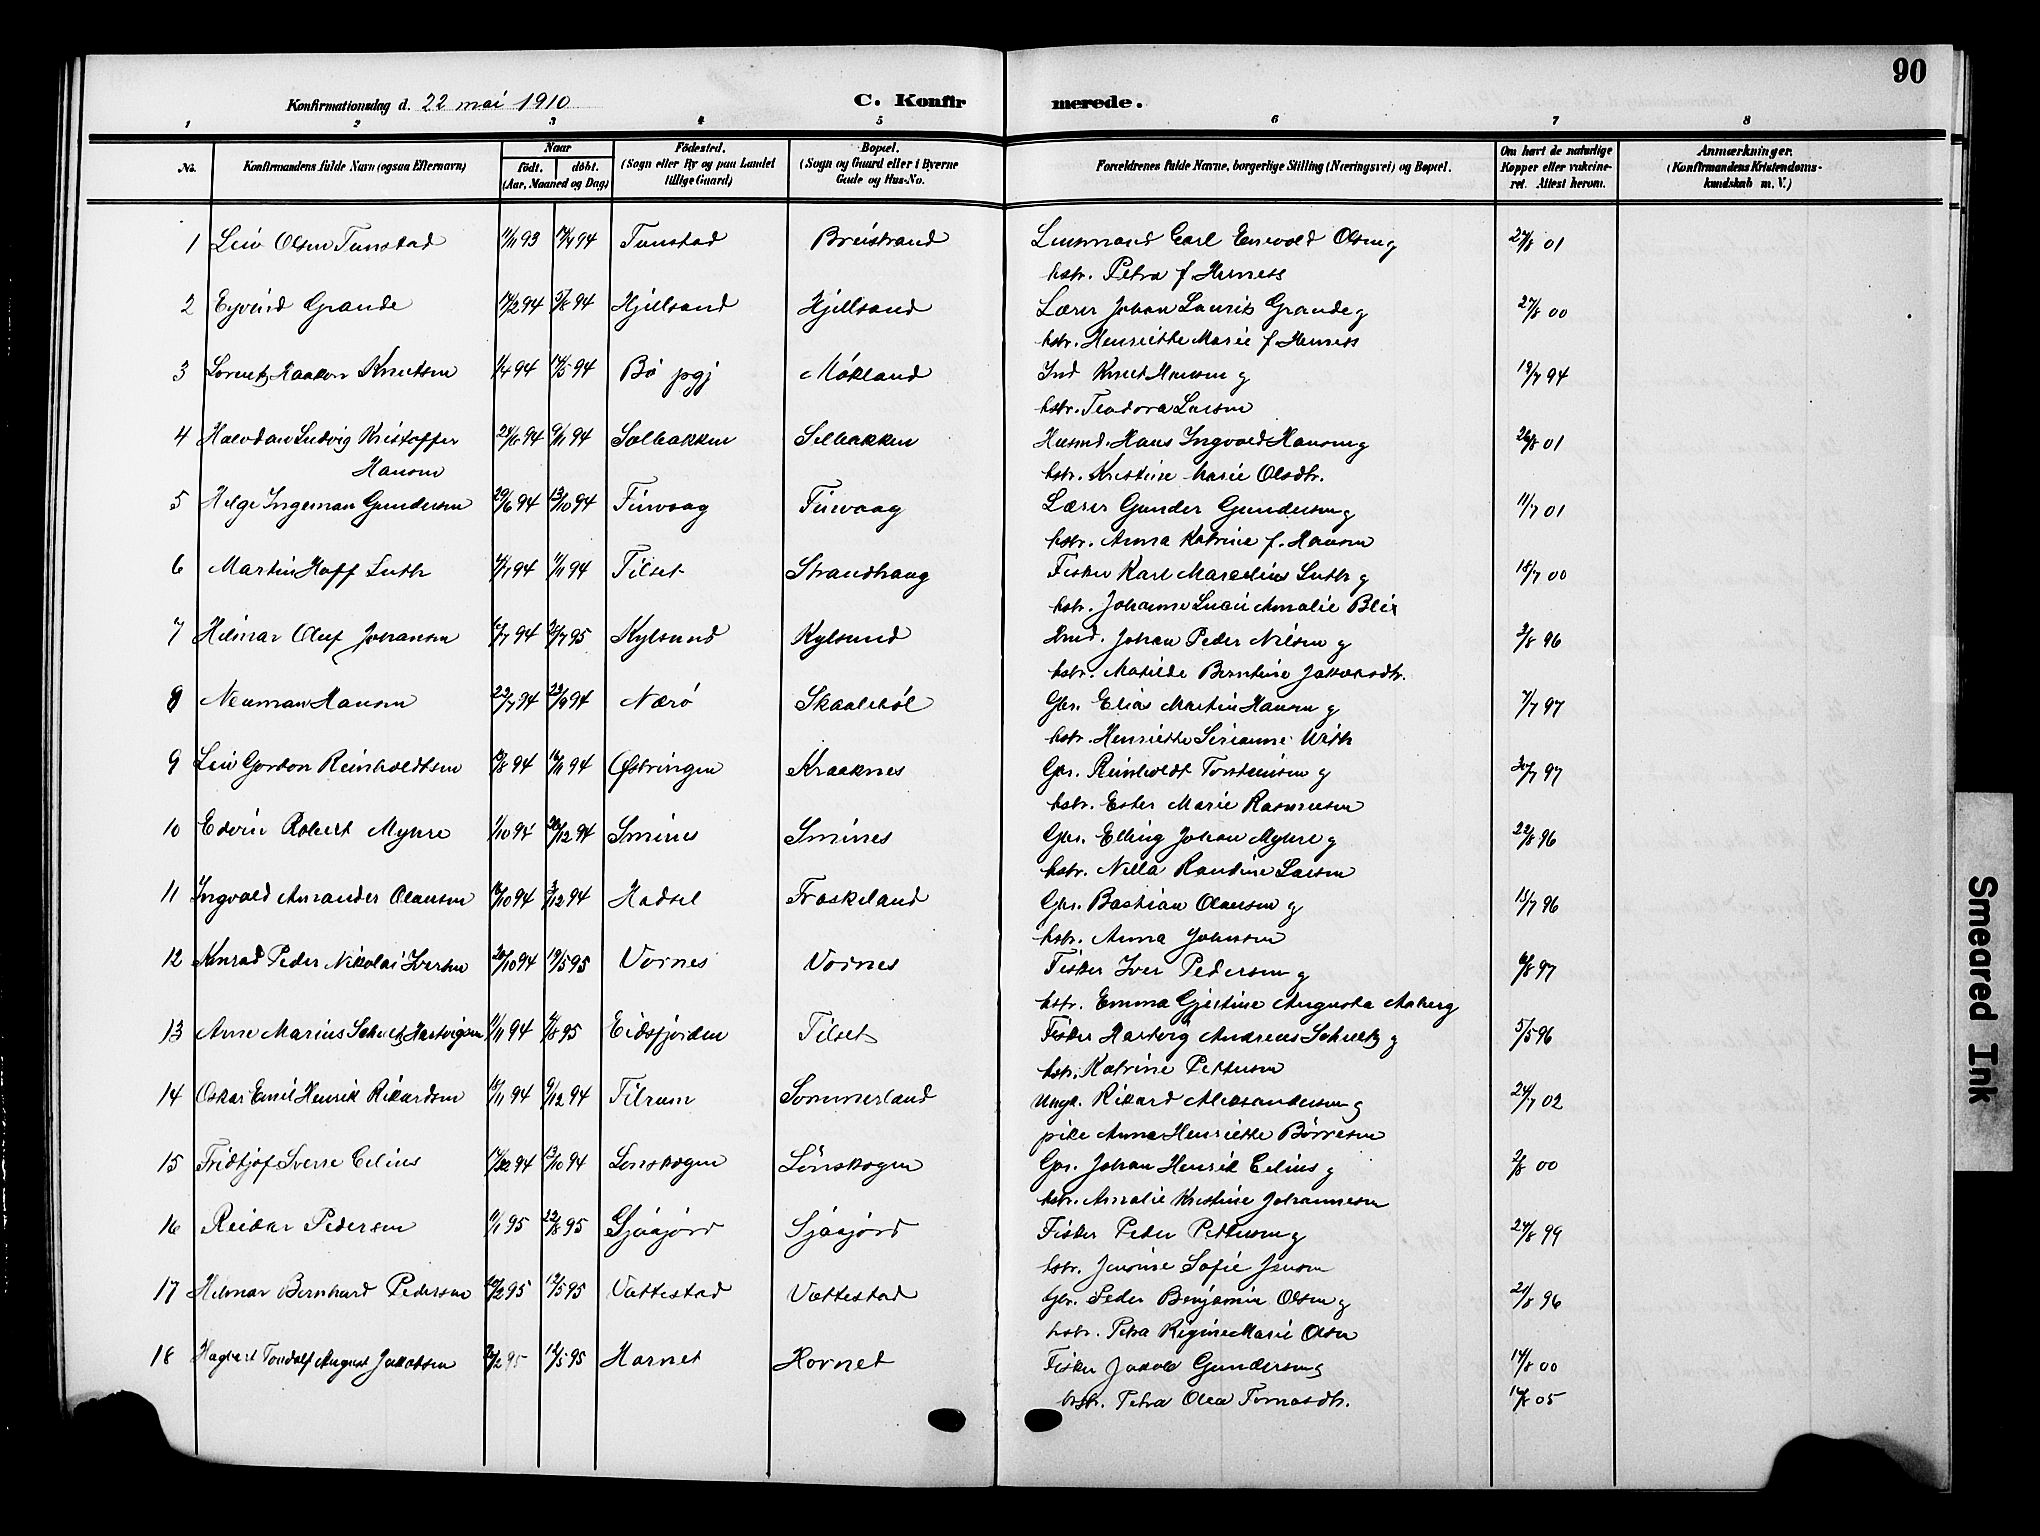 90
Konfirmationsdag d. 22 mai 1910
C. Konfirmerede.
1 2 3 4 5 6 7 8
No. Konfirmandens fulde Navn (ogsaa Efternavn) Naar født. døbt. (Aar, Maaned og Dag) Födested. (Sogn eller By og paa Landet tillige Gaard) Bopæl. (Sogn og Gaard eller i Byerne Gade og Hus-No. Forældrenes fulde Navne, borgerlige Stilling (Næringsvei) og Bopæl. Om havt de naturlige Kopper eller vakcineret. Attest herom. Anmærkninger. (Konfirmandens Kristendomskundskab m. V.)
1 Leiv Olsen Tunstad 11/11 93 94 Tunstad Breistrand Lensmand Carl Enevold Olsen g 27/8 01
hstr. Petra f Hemess
2 Eyvind Grande 17/2 94 5/8 94 Hjellsand Hjellsand Lærer Johan Laurits Grande g 27/8 00
hstr. Henriette Marie f Hemess
3 Lorentz Haakon Knutsen 1/4 94 14/5 94 Bö pgj Mökland Ind Knut Hansen g 19/7 94
hstr. Teodora Larsen
4 Halvdan Ludvig Kristoffer 94 9/11 94 Solbakken Solbakken Husmd. Hans Ingvald Hansen g 26/8 01
Hansen hstr. Kristine Marie Olsdtr.
5 Helge Ingeman Gundersen 29/6 94 13/10 94 Finvaag Finvaag Lærer Gunder Gundersen g 11/7 01
hstr. Anna Katrine f. Hansen
6 Martin Hoff Luth 94 11/11 94 Tilset Strandhaug Fisker Karl Marelius Luth g 18/7 00
hstr. Johanne Lucie Amalie Blix
7 Hilmar Oluf Johansen 94 95 Kylsund Kylsund Johan Peder Nilsen g 3/8 96
hstr. Matilde Berntine Jakobsdtr.
8 Neuman Hansen 22/7 94 23/9 94 Nærö Skaaleböl Gbr. Elias Martin Hansen g 7/7 97
hstr. Henriette Sirianne With
9 Leiv Gordon Reinholdtsen 13/8 94 94 Østringen Kraaknes Gbr. Reinholdt Torsteinsen g 30/7 97
hstr. Ester Marie Rasmussen
10 Edvin Robert Myhre 1/10 94 26/12 94 Smines Smines Gbr. Elling Johan Myhre g 22/8 96
hstr. Nella Randine Larsen
11 Ingvald Amander Olausen 94 3/12 94 Hadsel Fraskeland Gbr. Bastian Olausen g 15/7 96
hstr. Anna Johnsen
12 Konrad Peder Nikolai Iversen 20/10 94 19/5 95 Vornes Vornes Fisker Iver Pedersen g 6/8 97
hstr. Emma Gjertine Augusta Aaberg
13 Arne Marius Schultz Hartvigsen 11/11 94 95 Eidsfjorden Tilset Fisker Hartvig Andreas Schultz g 5/5 96
hstr. Katrine Pettersen
14 Oskar Emil Henrik Rikardsen 15/11 94 9/12 94 Tilrum Sommerland Ungk. Rikard Aleksandersen g 24/7 02
pike Anna Henriette Börresen
15 Fridtjof Sverre Celius 94 13/10 94 Lonskogen Lönskogen Gbr. Johan Henrik Celius g 2/8 00
hstr. Amalie Kristine Johannesen
16 Reidar Pedersen 11/1 95 22/8 95 Gjöajörd Sjöajörd Fisker Peder Pettersen g 24/8 99
hstr. Jensine Sofie Jensen
17 Helmar Bernhard Pedersen 20/2 95 12/5 95 Vottestad Vottestad Gbr. Peder Benjamin Olsen g 21/8 96
hstr. Petra Regine Marie Olsen
18 Hagbart Tondolf August Jakobsen 95 12/5 95 Hornet Hornet Fisker Jakob Gundersen g 14/8 00
hstr. Petra Olea Tomasdtr. 05
Smeared Ink